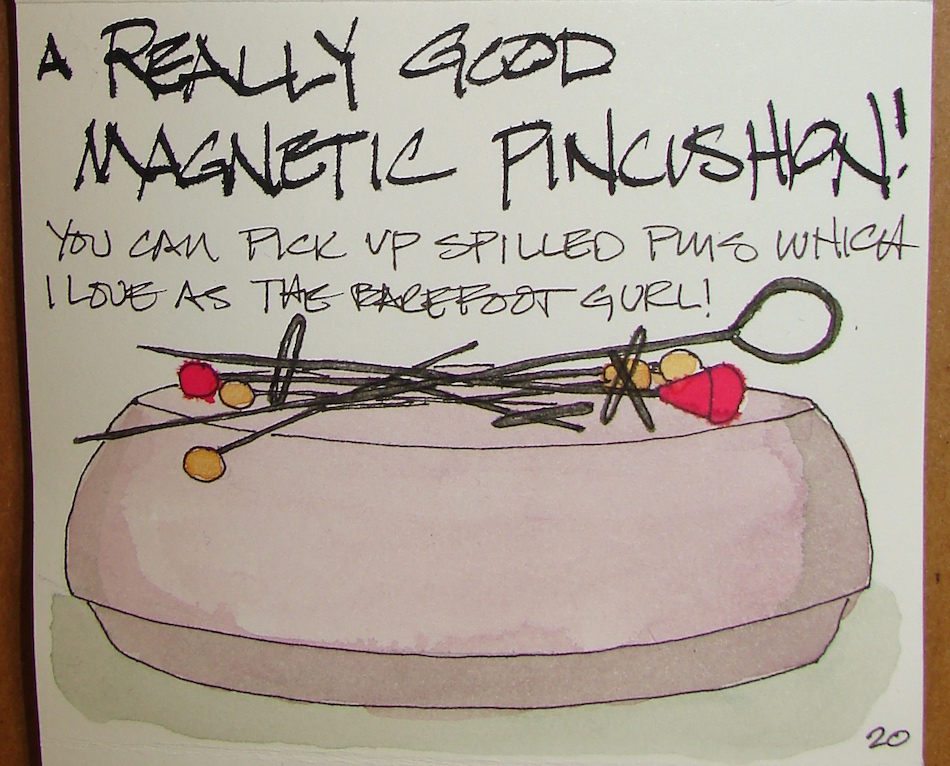 A REALLY GOOD
MAGNETIC PINCUSHION!
YOU CAN PICK UP SPILLED PINS WHICH
I LOVE AS THE BAREFOOT GURL!
20